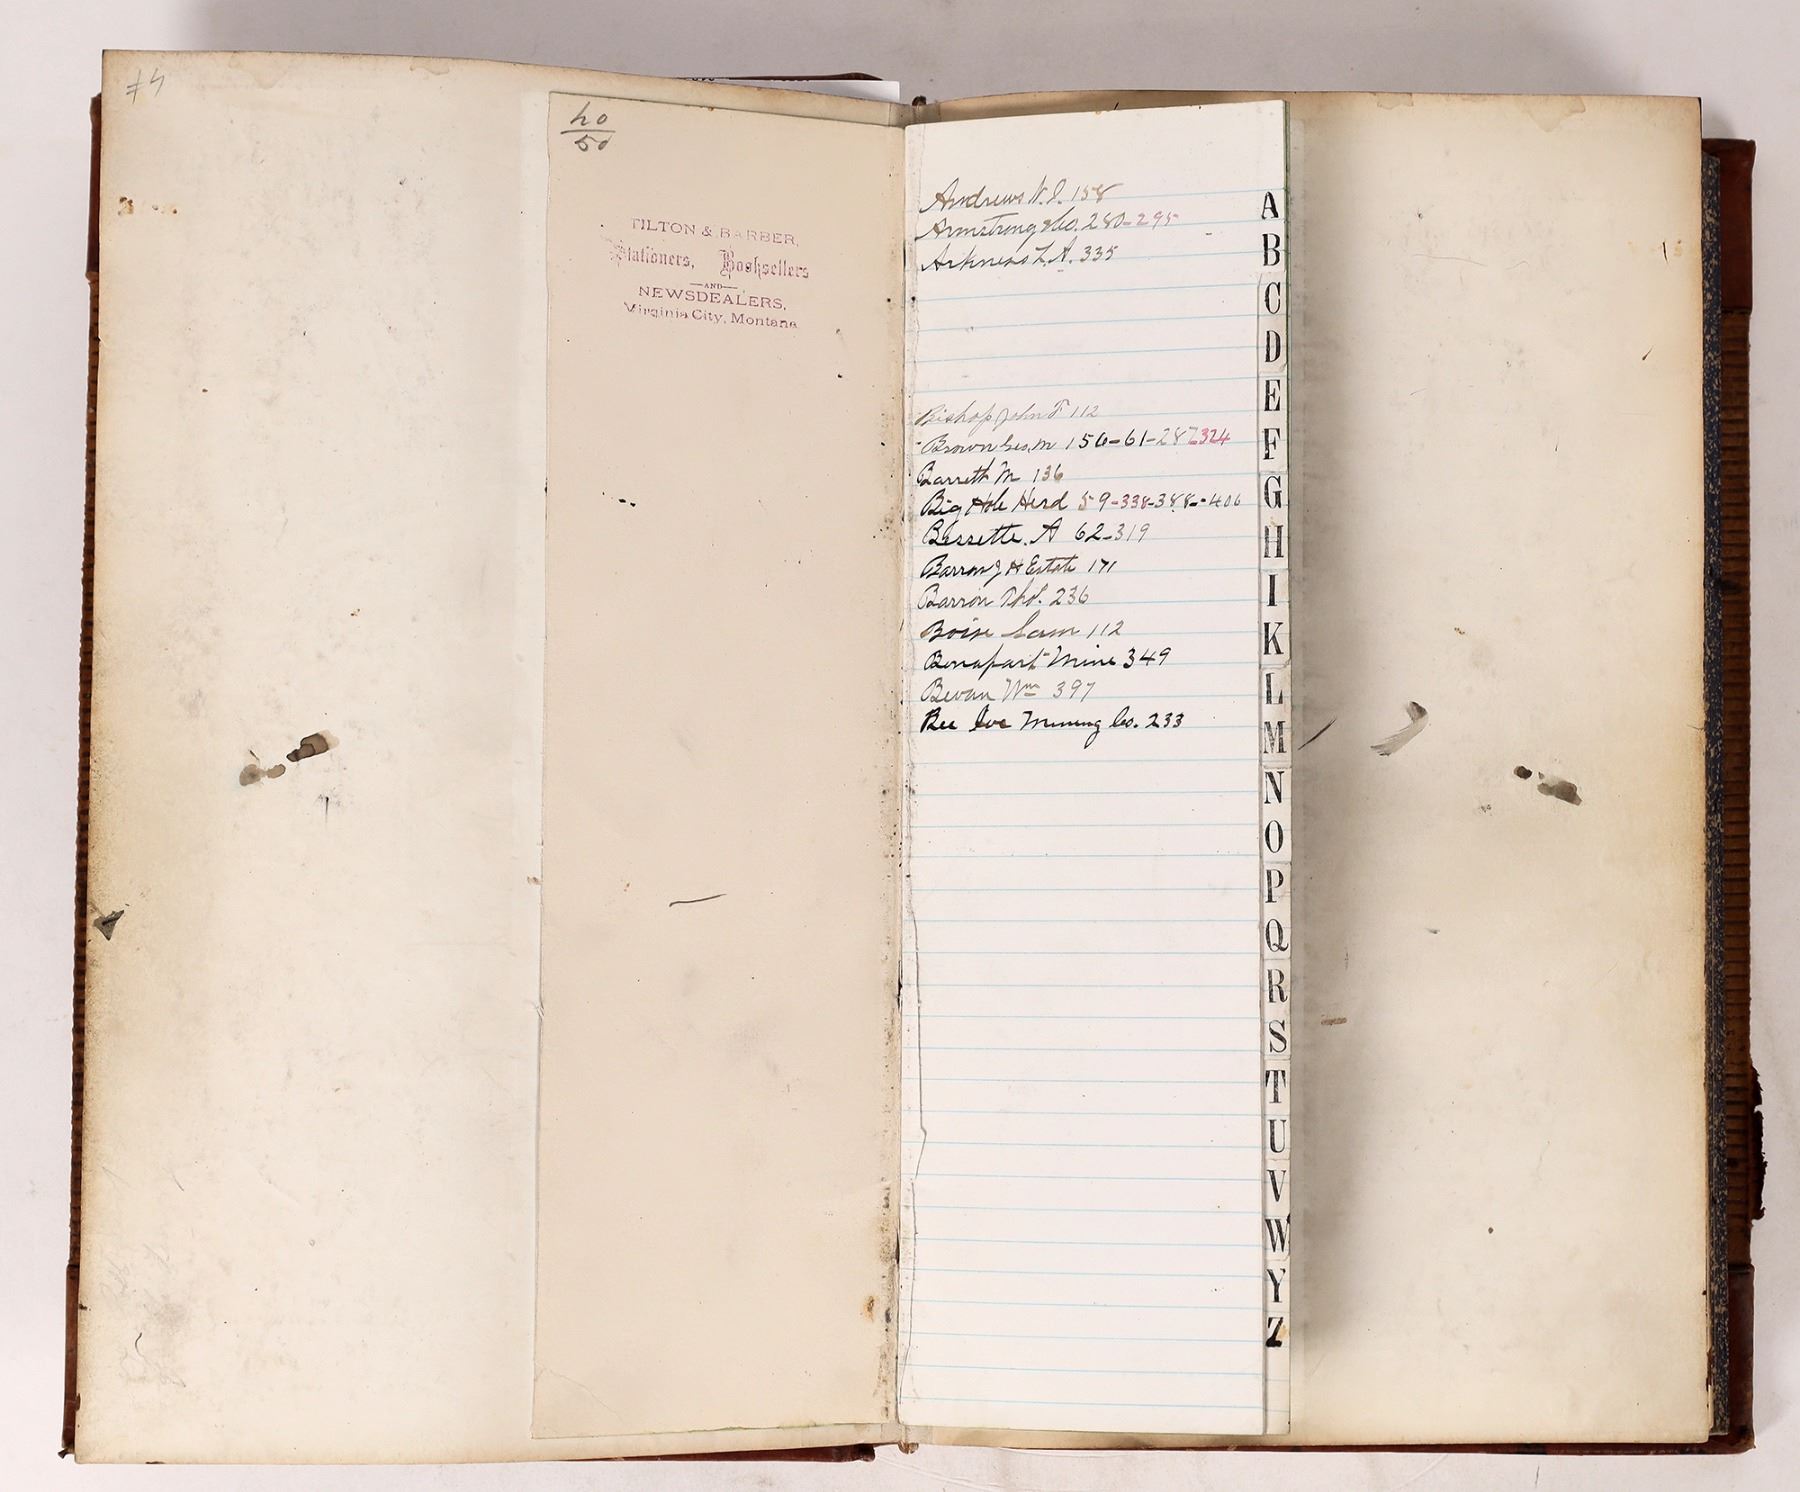 #4
40
50
TILTON & BARBER,
Stationers, Booksellers
—AND—
NEWSDEALERS,
Virginia City, Montana
Andrews W. J. 158
Armstrong & Co. 280-295
Arkness L. A. 335
Bishop John F 112
Brown Geo. M 156-61-287 324
Barrett M 136
Big Hole Herd 59-338-388-406
Bessette. A 62-319
Barron J H Estate 171
Barron Thos. 236
Boise Sam 112
Bonapart Mine 349
Bevan Wm 397
Bee Mining Co. 233
A
B
C
D
E
F
G
H
I
K
L
M
N
O
P
Q
R
S
T
U
V
W
Y
Z